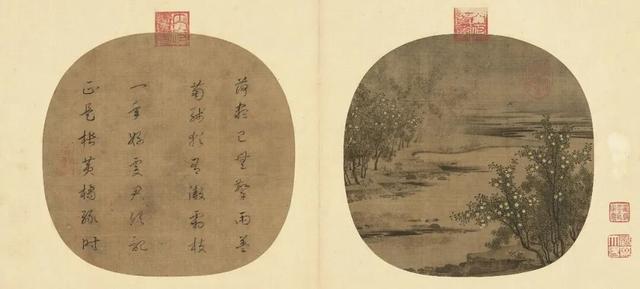 荷盡已無擎雨蓋
菊殘猶有傲霜枝
一年好處君須記
正是橙黃橘綠時